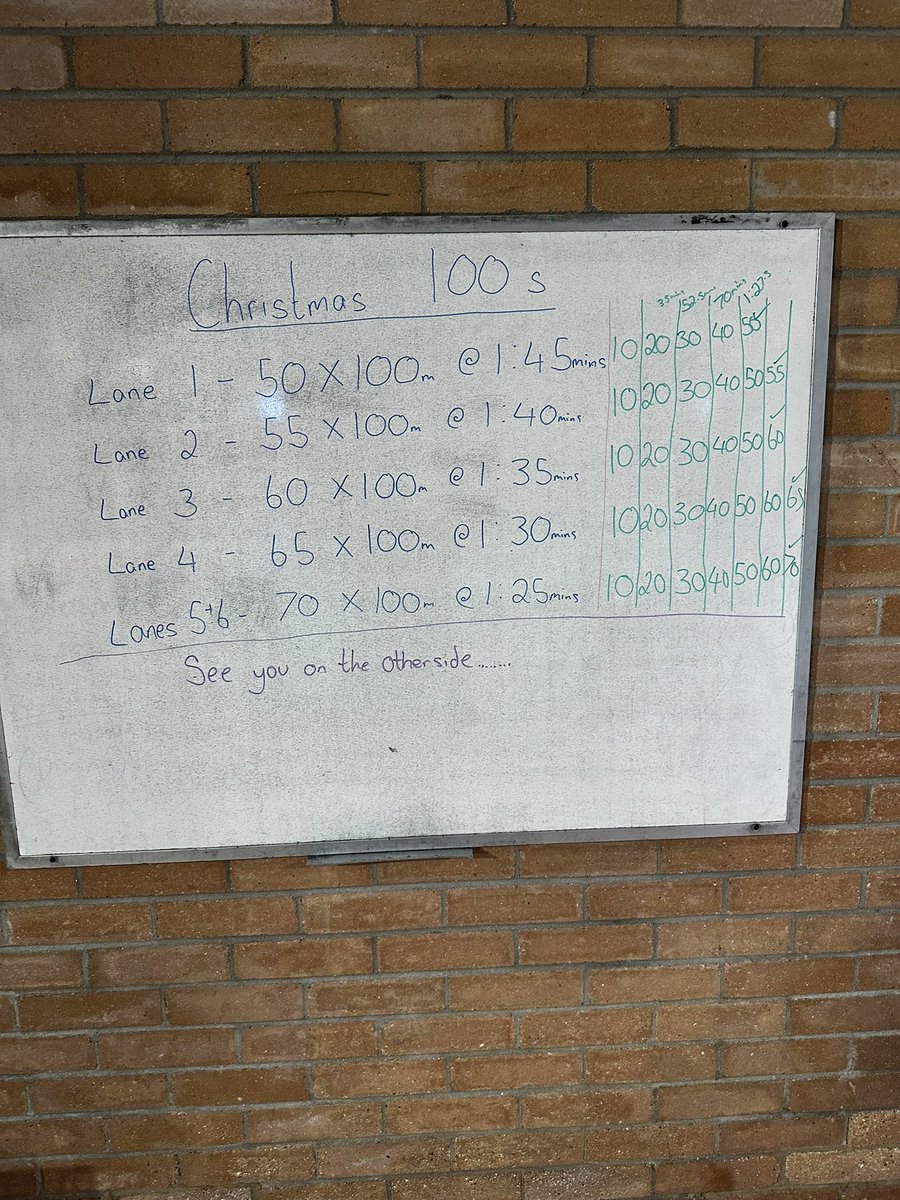 Christmas 100s
35mins 52.5mins 70mins 1:27.5
Lane 1 - 50 X 100m @ 1:45mins 10 20 30 40 50 ✓
Lane 2 - 55 X 100m @ 1:40mins 10 20 30 40 50 55 ✓
Lane 3 - 60 X 100m @ 1:35mins 10 20 30 40 50 60 ✓
Lane 4 - 65 X 100m @ 1:30mins 10 20 30 40 50 60 65 ✓
Lanes 5+6 - 70 X 100m @ 1:25mins 10 20 30 40 50 60 70 ✓
See you on the otherside........